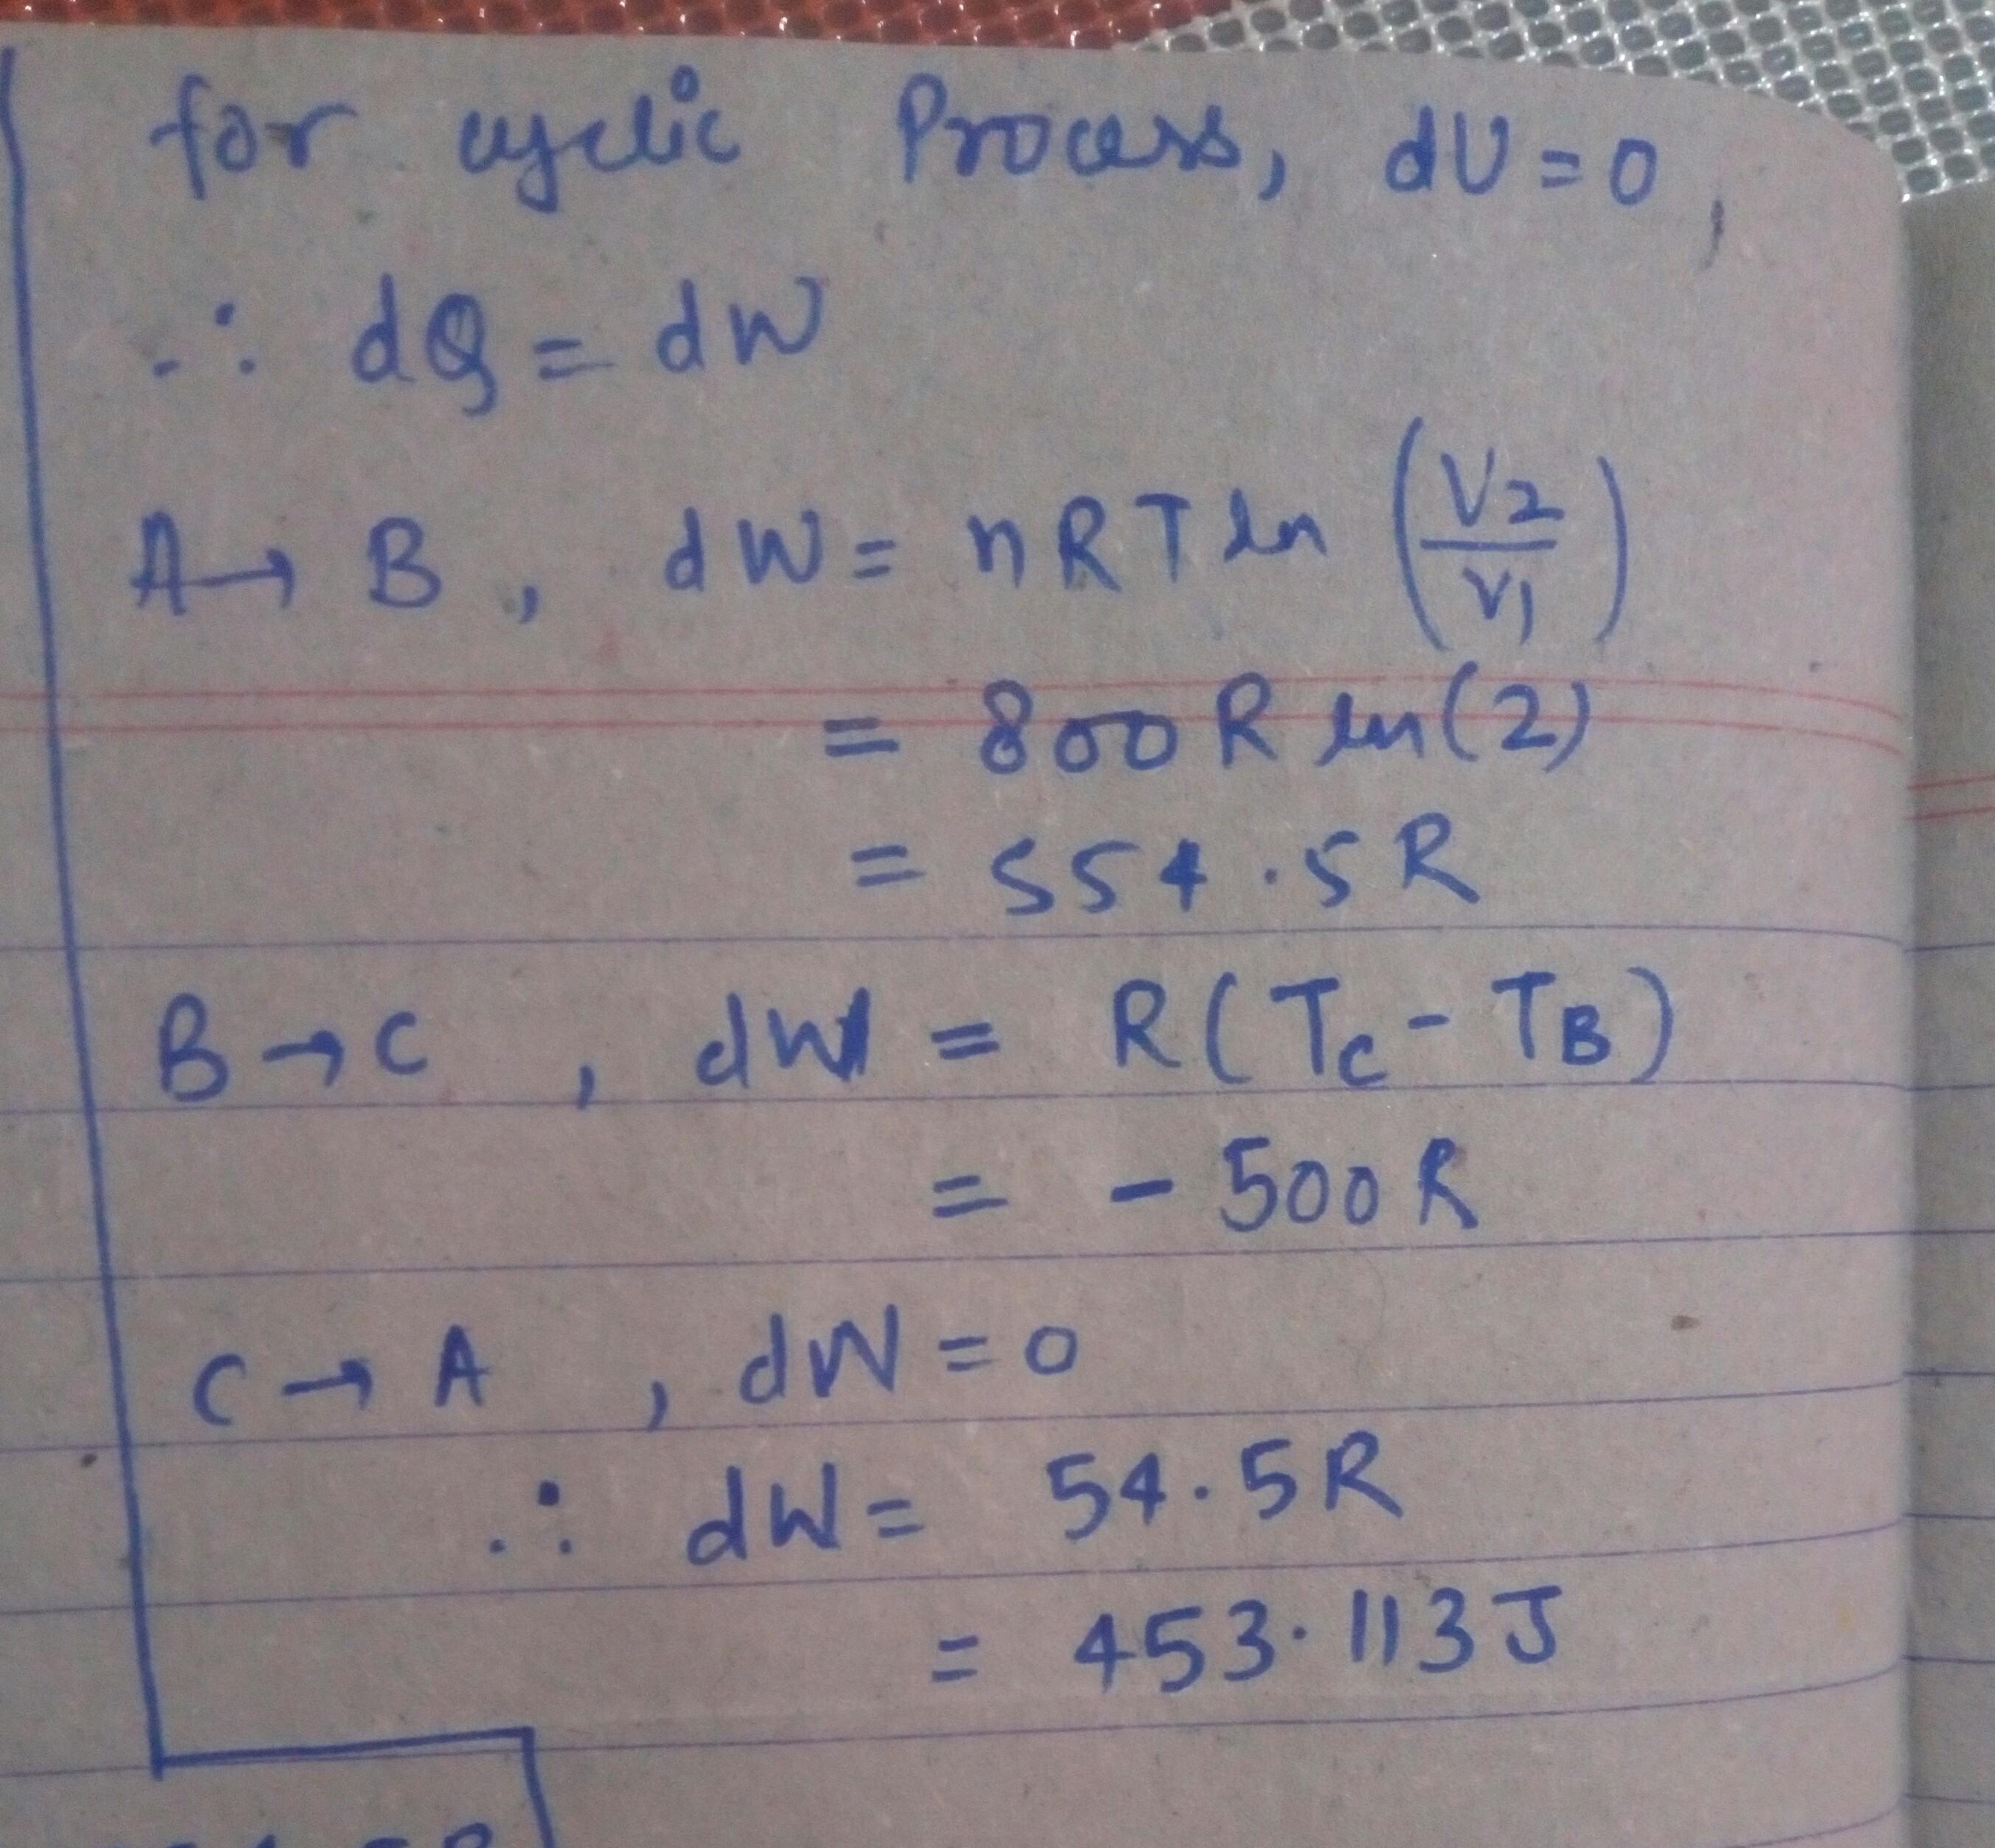 for cyclic Process, dU = 0,
∴ dQ = dW
A → B , dW = nRT ln (V2/V1)
= 800 R ln(2)
= 554.5 R
B → C , dW = R(TC - TB)
= - 500 R
C → A , dW = 0
∴ dW = 54.5 R
= 453.113 J